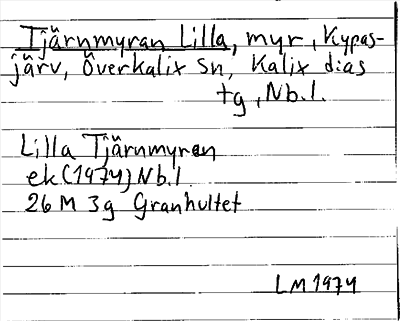 Tjärnmyran Lilla, myr, Kypas-
järv, Överkalix sn, Kalix dias
tg, Nb.l.
Lilla Tjärnmyran
ek (1974) Nb.l
26 M 3g Granhultet
LM 1974